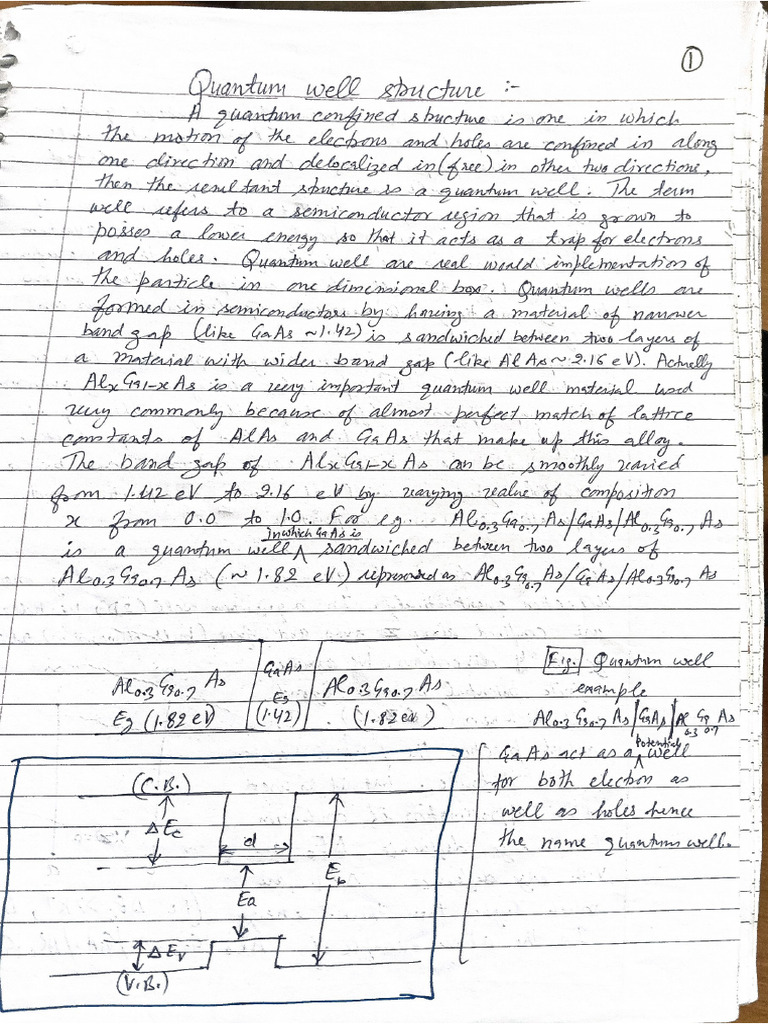 ①
Quantum well structure :-
A quantum confined structure is one in which
the motion of the electrons and holes are confined in along
one direction and delocalized in (free) in other two directions,
then the resultant structure is a quantum well. The term
well refers to a semiconductor region that is grown to
posses a lower energy so that it acts as a trap for electrons
and holes. Quantum well are real would implementation of
the particle in one dimensional box. Quantum wells are
formed in semiconductors by having a material of narrower
band gap (like GaAs ~1.42) is sandwiched between two layers of
a material with wider band gap (like AlAs ~ 2.16 eV). Actually
AlxGa1-xAs is a very important quantum well material used
very commonly because of almost perfect match of lattice
constants of AlAs and GaAs that make up this alloy.
The band gap of AlxGa1-xAs can be smoothly varied
from 1.42 eV to 2.16 eV by varying value of composition
x from 0.0 to 1.0. For eg. Al0.3Ga0.7As/GaAs/Al0.3Ga0.7As
in which GaAs is
is a quantum well ^ sandwiched between two layers of
Al0.3Ga0.7As (~ 1.82 eV.) represented as Al0.3Ga0.7As/GaAs/Al0.3Ga0.7As
Al0.3Ga0.7As
Eg (1.82 eV)
GaAs
Eg
(1.42)
Al0.3Ga0.7As
(1.82 eV)
Fig. Quantum well
example
Al0.3Ga0.7As/GaAs/Al0.3Ga0.7As
Potential
GaAs act as a ^ well
for both electron as
well as holes hence
the name quantum well.
(C.B.)
ΔEc
d
Ea
Eb
ΔEv
(V.B.)